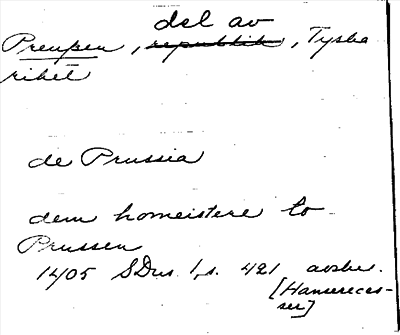 del av
Preussen, republik, Tyska
riket
de Prussia
dem homeistere to
Prussen
1405 SDns 1, s. 421 avskr.
[Hansereces-
ser]